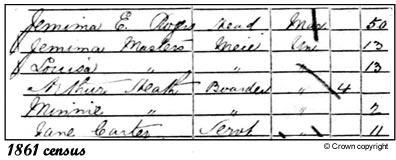 Jemima E. Rogers Head Mar 50
Jemima Masters Neice Un 13
Louisa " " 13
Arthur Heath Boarder " 4
Minnie " " 2
Jane Carter Servt " 11
1861 census
© Crown copyright